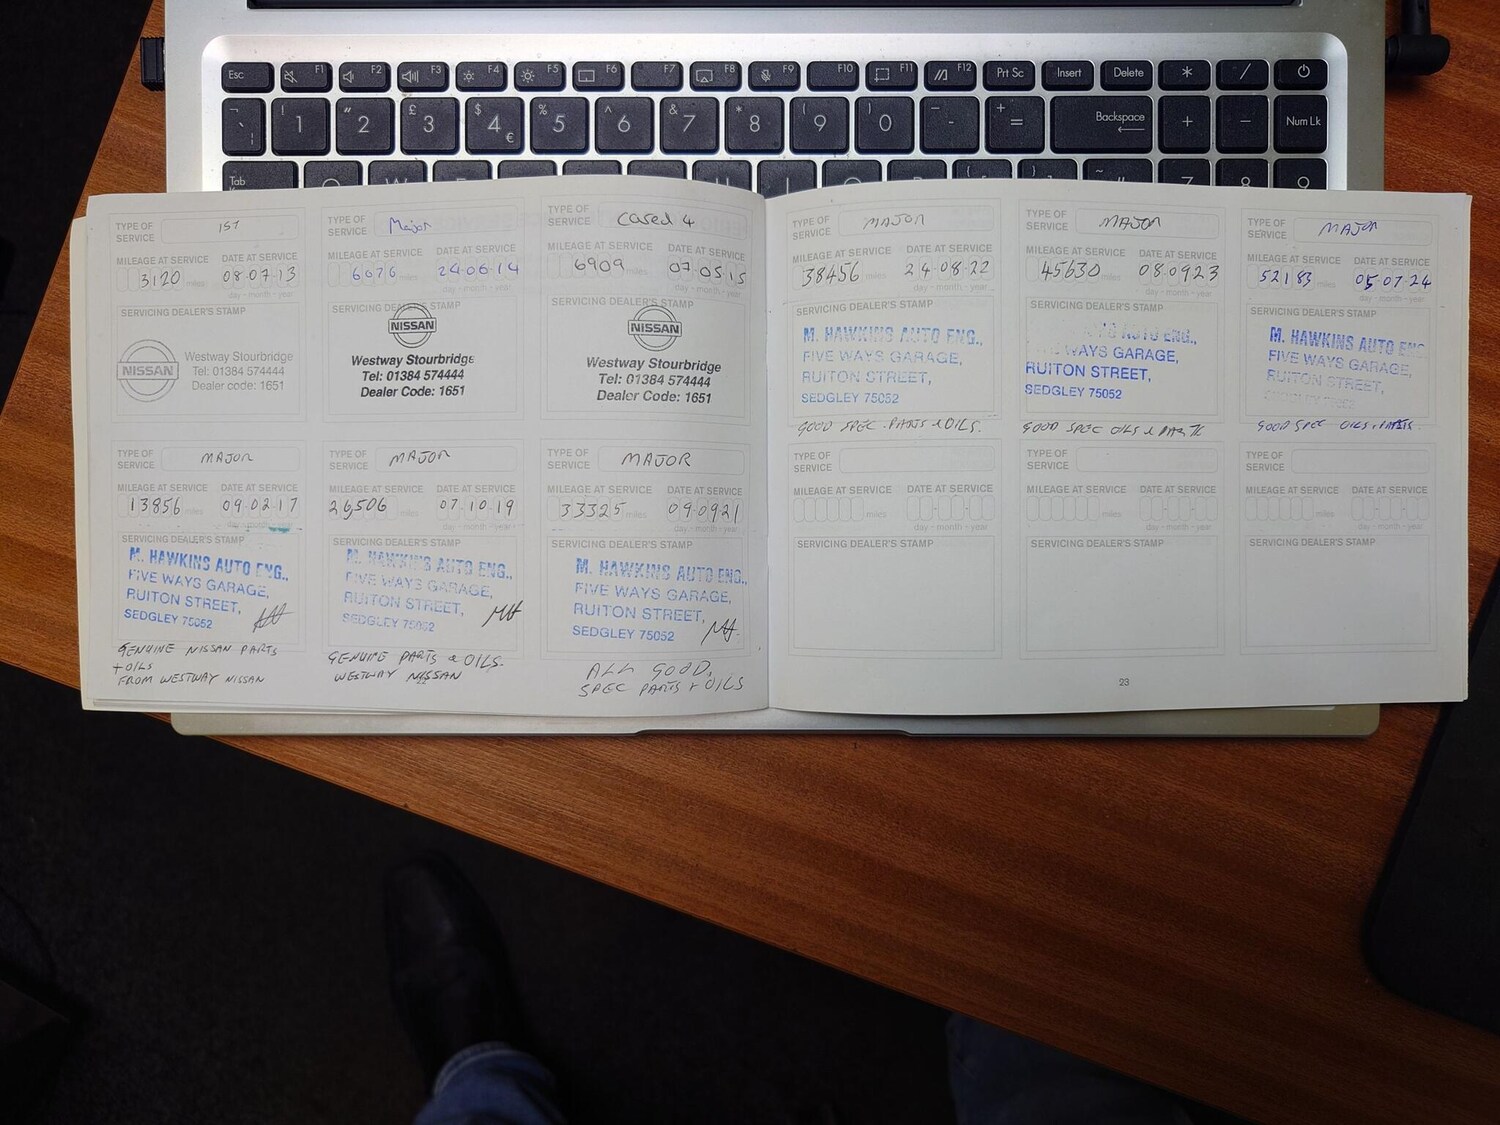 Esc F1 F2 F3 F4 F5 F6 F7 F8 F9 F10 F11 F12 Prt Sc Insert Delete * /
¬ ` ¦ ! 1 " 2 £ 3 $ 4 € % 5 ^ 6 & 7 * 8 ( 9 ) 0 _ - + = Backspace + - Num Lk
Tab
TYPE OF SERVICE 1ST
MILEAGE AT SERVICE DATE AT SERVICE
3120 miles 08 07 13
day - month - year
SERVICING DEALER'S STAMP
NISSAN
Westway Stourbridge
Tel: 01384 574444
Dealer code: 1651
TYPE OF SERVICE Major
MILEAGE AT SERVICE DATE AT SERVICE
6076 miles 24 06 14
day - month - year
SERVICING DEALER'S STAMP
NISSAN
Westway Stourbridge
Tel: 01384 574444
Dealer Code: 1651
TYPE OF SERVICE Cared 4
MILEAGE AT SERVICE DATE AT SERVICE
6909 miles 07 05 15
day - month - year
SERVICING DEALER'S STAMP
NISSAN
Westway Stourbridge
Tel: 01384 574444
Dealer Code: 1651
TYPE OF SERVICE MAJOR
MILEAGE AT SERVICE DATE AT SERVICE
13856 miles 09 02 17
day - month - year
SERVICING DEALER'S STAMP
M. HAWKINS AUTO ENG.,
FIVE WAYS GARAGE,
RUITON STREET,
SEDGLEY 75052
GENUINE NISSAN PARTS
+ OILS
FROM WESTWAY NISSAN
TYPE OF SERVICE MAJOR
MILEAGE AT SERVICE DATE AT SERVICE
26,506 miles 07 10 19
day - month - year
SERVICING DEALER'S STAMP
M. HAWKINS AUTO ENG.,
FIVE WAYS GARAGE,
RUITON STREET,
SEDGLEY 75052
GENUINE PARTS & OILS.
WESTWAY NISSAN
TYPE OF SERVICE MAJOR
MILEAGE AT SERVICE DATE AT SERVICE
33325 miles 09 09 21
day - month - year
SERVICING DEALER'S STAMP
M. HAWKINS AUTO ENG.,
FIVE WAYS GARAGE,
RUITON STREET,
SEDGLEY 75052
ALL GOOD,
SPEC PARTS + OILS
TYPE OF SERVICE MAJOR
MILEAGE AT SERVICE DATE AT SERVICE
38456 miles 24 08 22
day - month - year
SERVICING DEALER'S STAMP
M. HAWKINS AUTO ENG.,
FIVE WAYS GARAGE,
RUITON STREET,
SEDGLEY 75052
GOOD SPEC. PARTS & OILS.
TYPE OF SERVICE MAJOR
MILEAGE AT SERVICE DATE AT SERVICE
45630 miles 08 09 23
day - month - year
SERVICING DEALER'S STAMP
AUTO ENG.,
WAYS GARAGE,
RUITON STREET,
SEDGLEY 75052
GOOD SPEC OILS & PARTS
TYPE OF SERVICE MAJOR
MILEAGE AT SERVICE DATE AT SERVICE
52183 miles 05 07 24
day - month - year
SERVICING DEALER'S STAMP
M. HAWKINS AUTO ENG.
FIVE WAYS GARAGE,
RUITON STREET,
GOOD SPEC OILS & PARTS.
TYPE OF SERVICE
MILEAGE AT SERVICE DATE AT SERVICE
miles
day - month - year
SERVICING DEALER'S STAMP
TYPE OF SERVICE
MILEAGE AT SERVICE DATE AT SERVICE
miles
day - month - year
SERVICING DEALER'S STAMP
TYPE OF SERVICE
MILEAGE AT SERVICE DATE AT SERVICE
miles
day - month - year
SERVICING DEALER'S STAMP
23